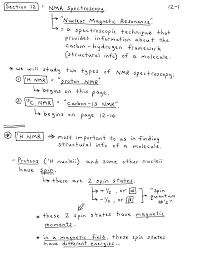 Section 12 : NMR Spectroscopy 12-1
"Nuclear Magnetic Resonance"
= a spectroscopic technique that
provides information about the
carbon-hydrogen framework
(structural info) of a molecule.
* we will study two types of NMR spectroscopy:
① ¹H NMR = "proton NMR"
begins on this page.
② ¹³C NMR = "Carbon-13 NMR"
begins on page 12-16
* ¹H NMR → most important to us in finding
structural info of a molecule.
- Protons (¹H nuclii) and some other nuclei
have spin.
there are 2 spin states:
+½, or
-½, or
"spin
quantum
#'s"
* these 2 spin states have magnetic
moments.
* in a magnetic field, these spin states
have different energies...